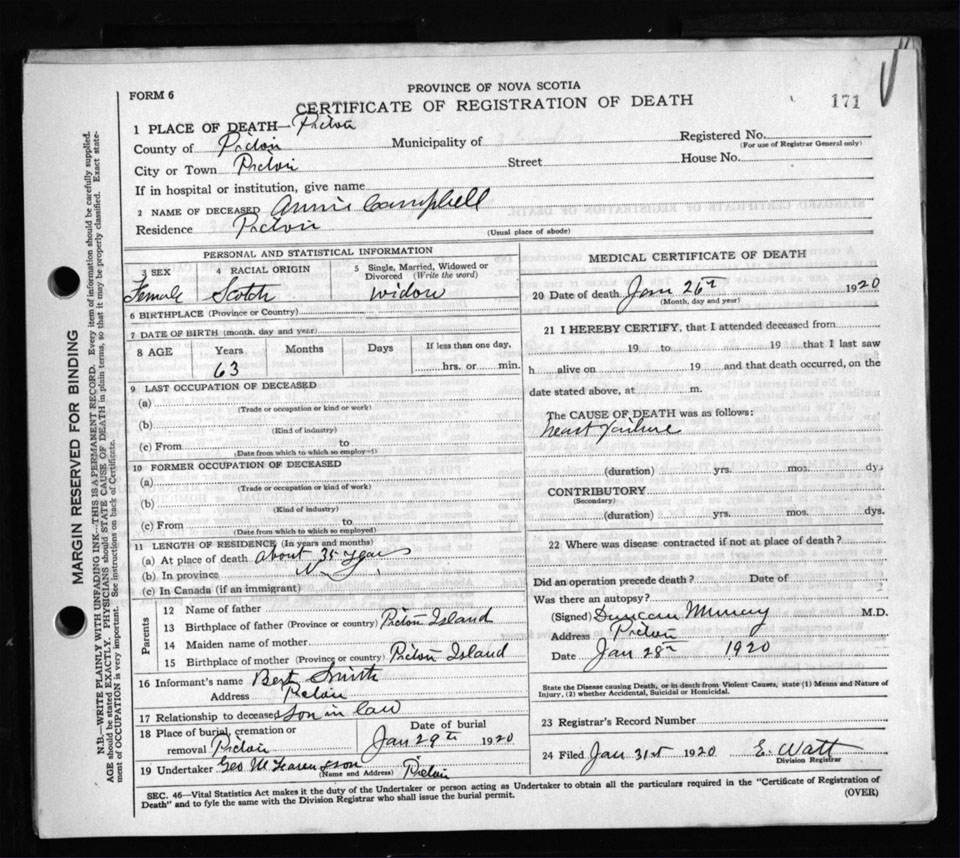 PROVINCE OF NOVA SCOTIA
FORM 6
CERTIFICATE OF REGISTRATION OF DEATH
171
1 PLACE OF DEATH—Pictou
County of Pictou Municipality of Registered No.
(For use of Registrar General only)
City or Town Pictou Street House No.
If in hospital or institution, give name
2 NAME OF DECEASED Annie Campbell
Residence Pictou
(Usual place of abode)
PERSONAL AND STATISTICAL INFORMATION
3 SEX 4 RACIAL ORIGIN 5 Single, Married, Widowed or Divorced (Write the word)
Female Scotch widow
6 BIRTHPLACE (Province or Country)
7 DATE OF BIRTH (month, day and year)
8 AGE Years Months Days If less than one day,
63 hrs. or min.
9 LAST OCCUPATION OF DECEASED
(a)
(Trade or occupation or kind or work)
(b)
(Kind of industry)
(c) From to
(Date from which to which so employ-1)
10 FORMER OCCUPATION OF DECEASED
(a)
(Trade or occupation or kind of work)
(b)
(Kind of industry)
(c) From to
(Date from which to which so employed)
11 LENGTH OF RESIDENCE (In years and months)
(a) At place of death about 35 years
(b) In province
(c) In Canada (if an immigrant)
Parents
12 Name of father
13 Birthplace of father (Province or country) Pictou Island
14 Maiden name of mother
15 Birthplace of mother (Province or country) Pictou Island
16 Informant's name Bert Smith
Address Pictou
17 Relationship to deceased Son in law
18 Place of burial, cremation or removal Pictou
Date of burial
Jan 29th 1920
19 Undertaker Geo Pictou
(Name and Address)
MEDICAL CERTIFICATE OF DEATH
20 Date of death Jan 26th 1920
(Month, day and year)
21 I HEREBY CERTIFY, that I attended deceased from
19 to 19 that I last saw
h alive on 19 and that death occurred, on the
date stated above, at m.
The CAUSE OF DEATH was as follows:
heart failure
(duration) yrs. mos. dys
CONTRIBUTORY
(Secondary)
(duration) yrs. mos. dys.
22 Where was disease contracted if not at place of death?
Did an operation precede death? Date of
Was there an autopsy?
(Signed) Duncan Murray M.D.
Address Pictou
Date Jan 28th 1920
State the Disease causing Death, or in death from Violent Causes, state (1) Means and Nature of
Injury, (2) whether Accidental, Suicidal or Homicidal.
23 Registrar's Record Number
24 Filed Jan 31st 1920 E. Watt
Division Registrar
SEC. 46—Vital Statistics Act makes it the duty of the Undertaker or person acting as Undertaker to obtain all the particulars required in the "Certificate of Registration of
Death" and to fyle the same with the Division Registrar who shall issue the burial permit. (OVER)
MARGIN RESERVED FOR BINDING
N.B.—WRITE PLAINLY WITH UNFADING INK—THIS IS A PERMANENT RECORD. Every item of information should be carefully supplied.
AGE should be stated EXACTLY. PHYSICIANS should STATE CAUSE OF DEATH in plain terms, so that it may be properly classified. Exact state-
ment of OCCUPATION is very important. See instructions on back of Certificate.